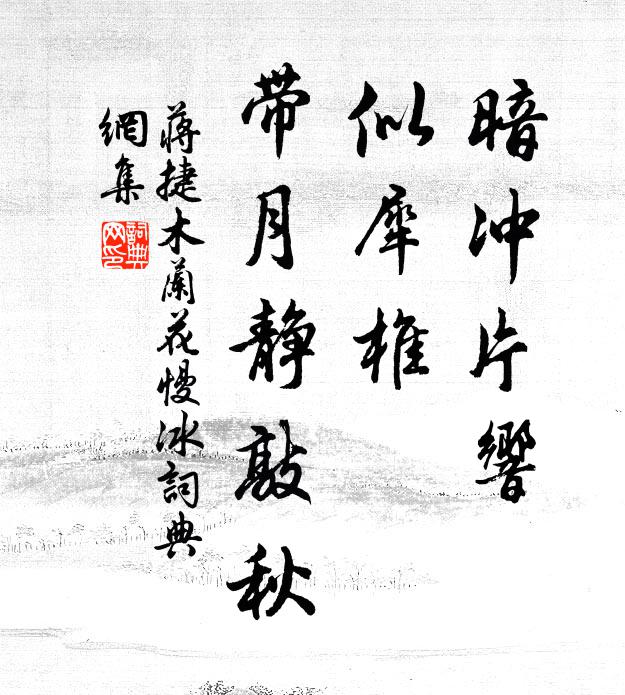 暗冲片響
似犀椎
带月静敲秋
蒋捷木蘭花慢冰詞典
網集
詞典
网印